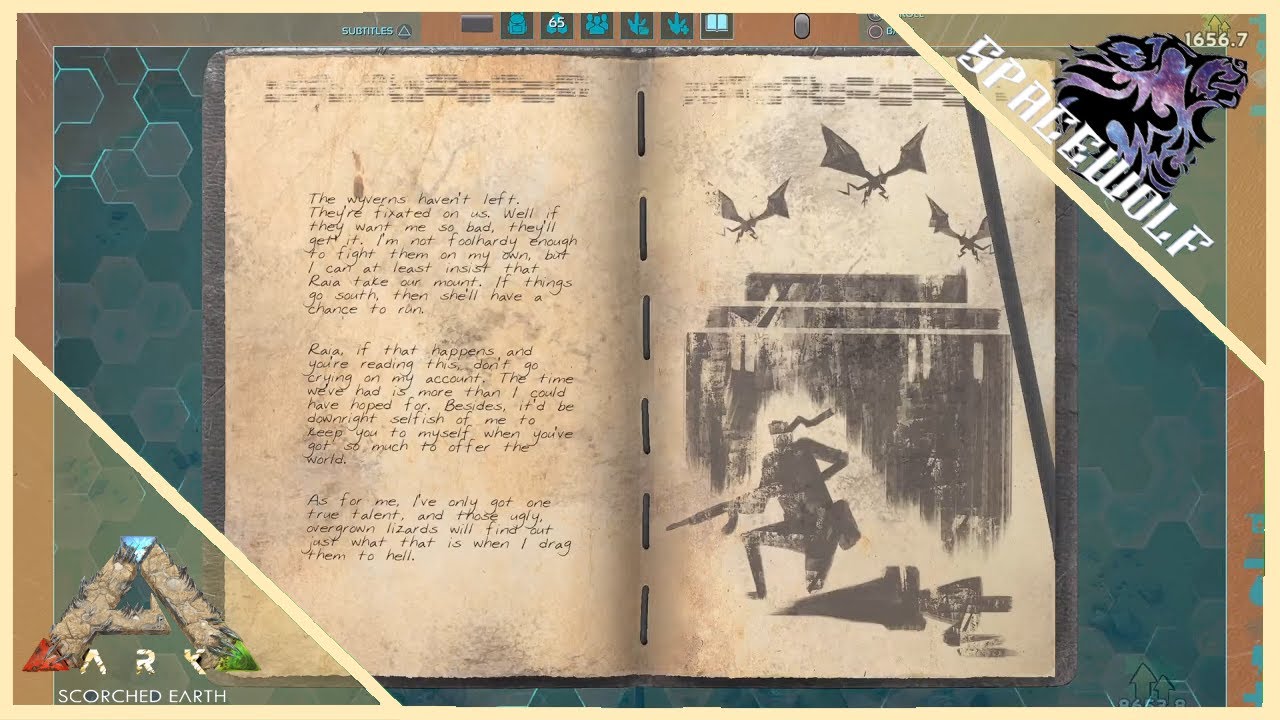 SUBTITLES
65
1656.7
SPACEWOLF
The wyverns haven't left.
They're fixated on us. Well if
they want me so bad, they'll
get it. I'm not foolhardy enough
to fight them on my own, but
I can at least insist that
Raia take our mount. If things
go south, then she'll have a
chance to run.
Raia, if that happens and
you're reading this, don't go
crying on my account. The time
we've had is more than I could
have hoped for. Besides, it'd be
downright selfish of me to
keep you to myself when you've
got so much to offer the
world.
As for me, I've only got one
true talent, and those ugly,
overgrown lizards will find out
just what that is when I drag
them to hell.
ARK
SCORCHED EARTH